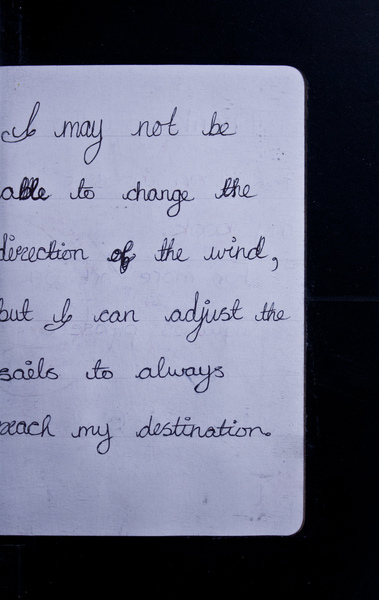 I may not be
able to change the
direction of the wind,
but I can adjust the
sails to always
reach my destination.